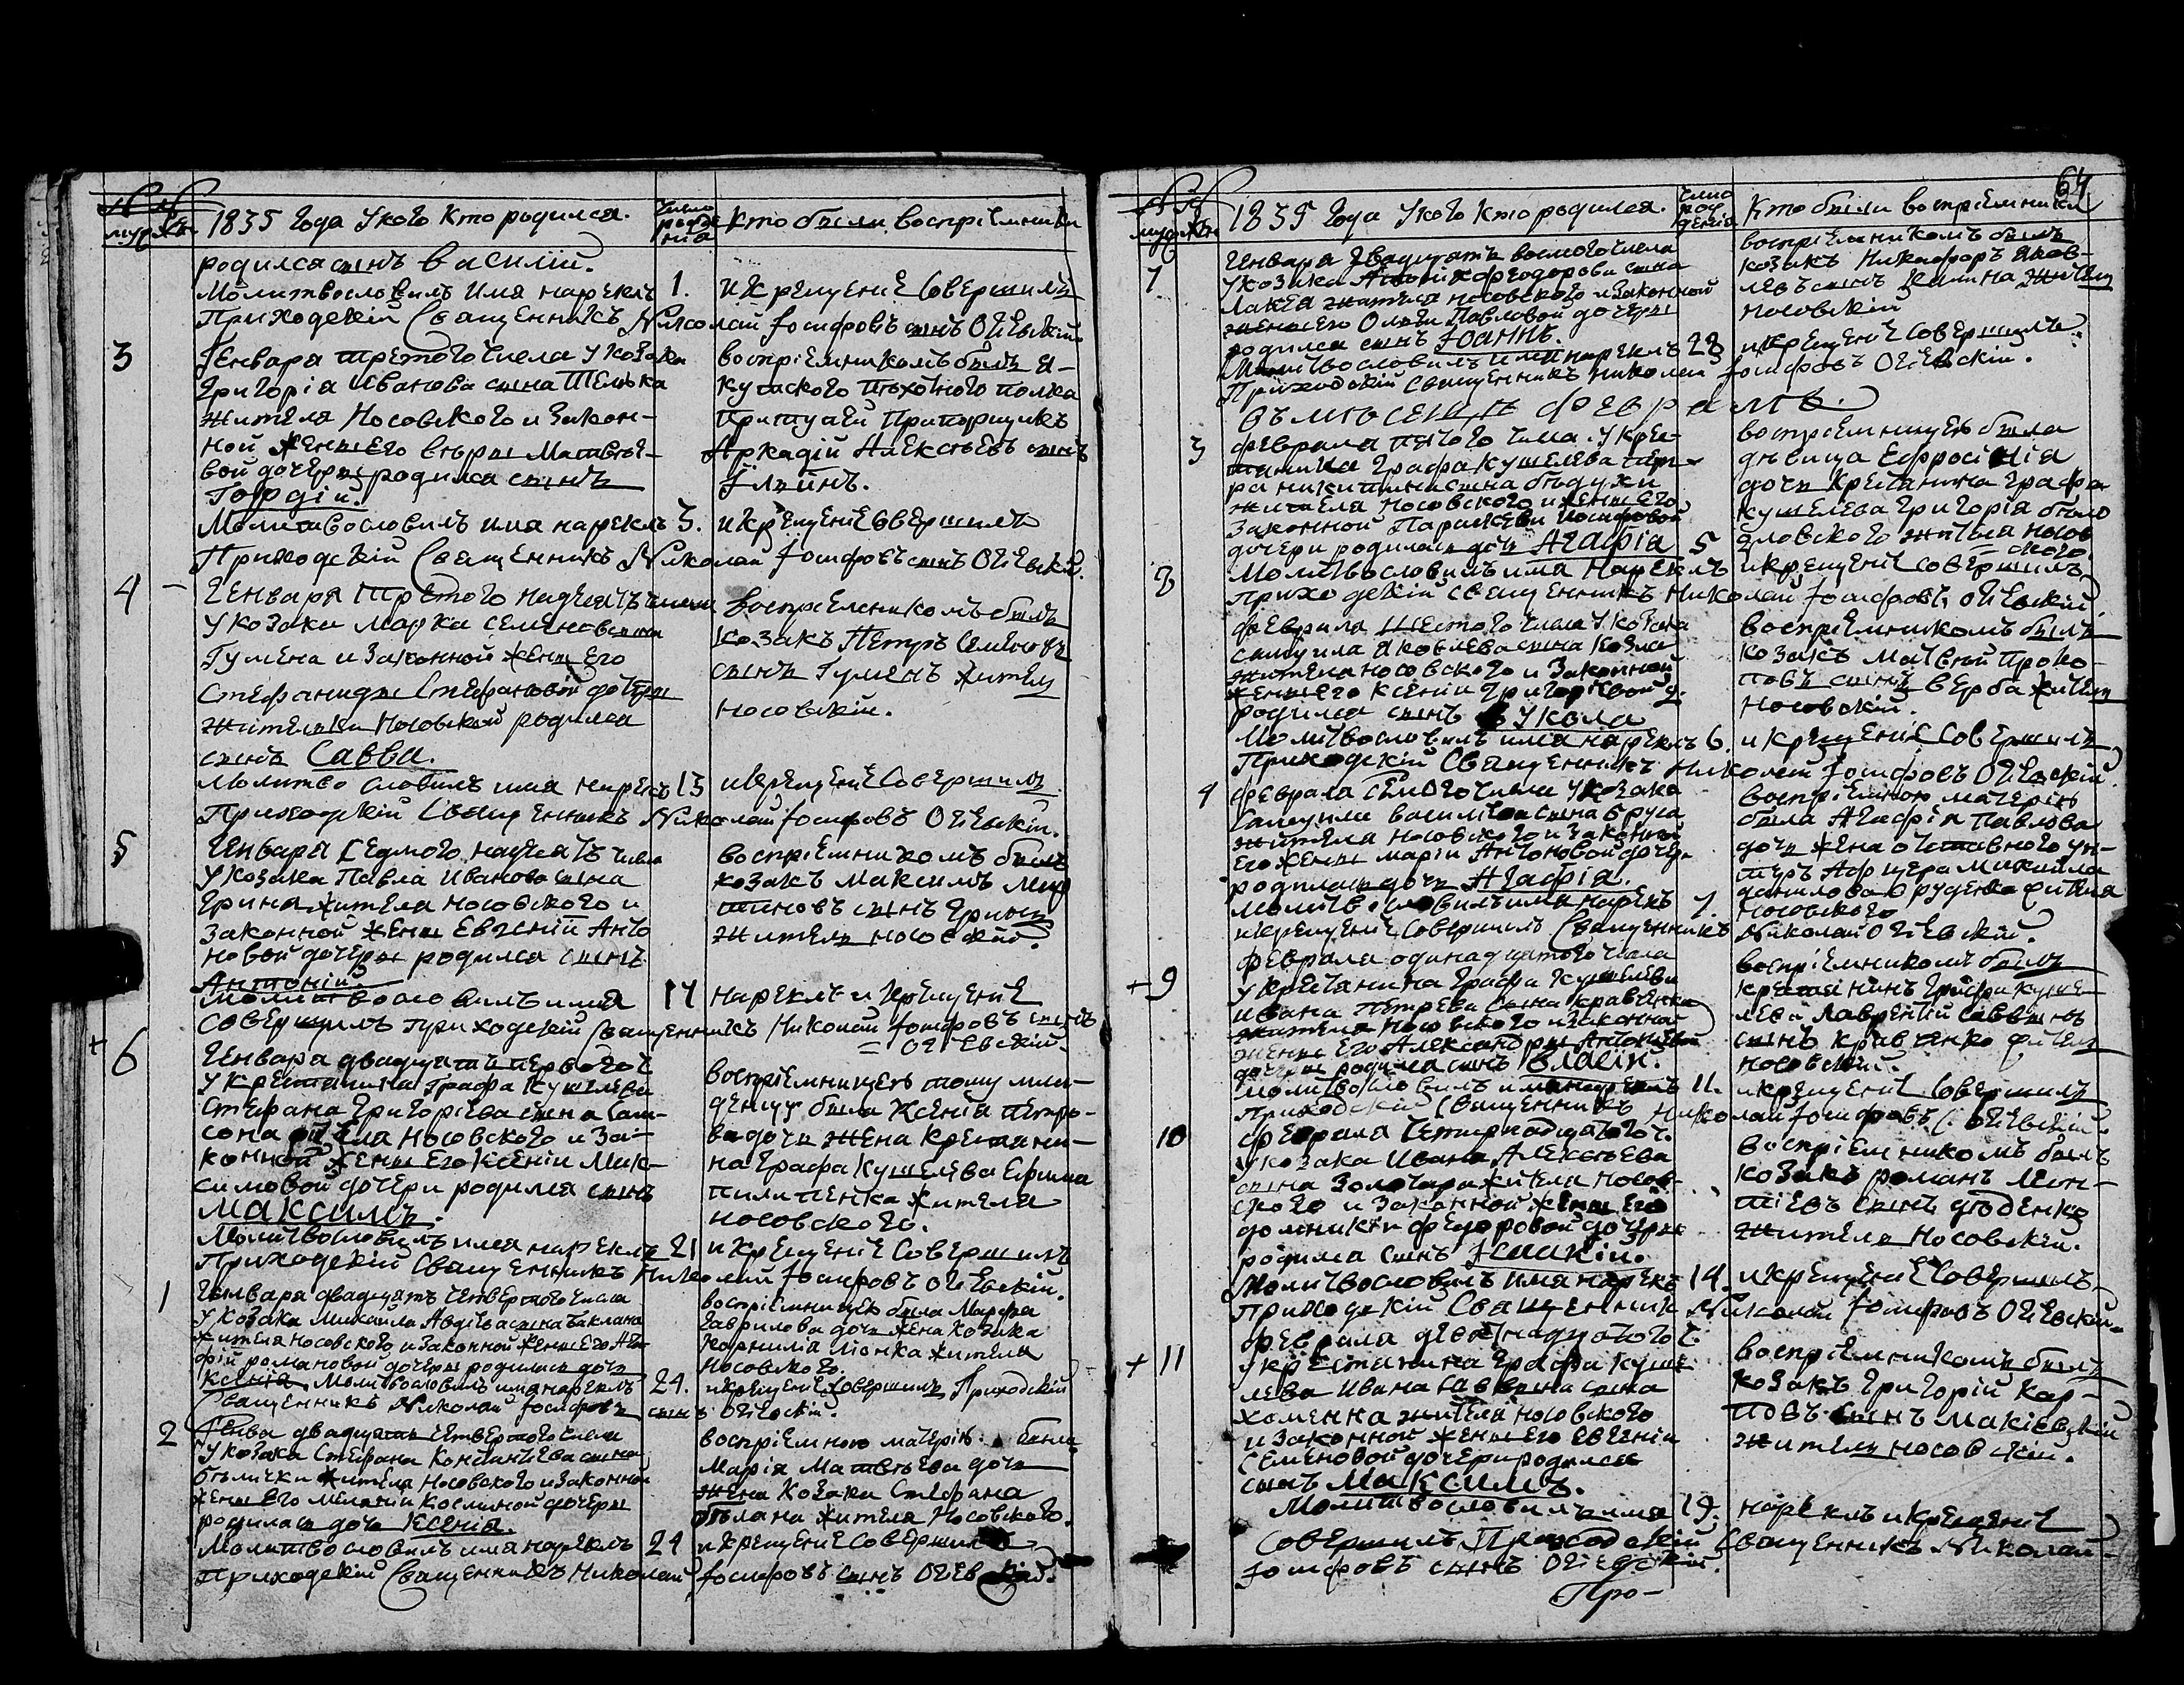 1835 года У кого кто родился.
Число рожде нія
кто были воспріемники
родился сынъ Василій.
Молитвословилъ имя нарекъ 1. и крещеніе совершилъ
Приходскій Священникъ Николай Іосифовъ сынъ Огіевскій
3 Генваря третого числа у козака
Григорія Иванова сына Шелька
жителя Носовского и закон-
ной жены его Веры Матвѣе-
вой дочеры родился сынъ
Гордій.
воспріемникомъ былъ Я-
кутского пѣхотного полка
Прапорщикъ
Аркадій Алексѣевъ сынъ
Ильинъ.
Молитвословилъ имя нарекъ 3. и крещеніе совершилъ
Приходскій Священникъ Николай Іосифовъ сынъ Огіевскій.
4 Генваря третого надцать числа
у козака Марка Семенова сына
Гумена и законной жены его
Стефаниды Стефановой дочеры
жительки Носовской родился
сынъ Савва.
воспріемникомъ былъ
козакъ Петръ Семеновъ
сынъ Гуменъ житель
Носовскій.
Молитвословилъ имя нарекъ 13 и крещеніе совершилъ
Приходскій Священникъ Николай Іосифовъ Огіевскій.
5 Генваря седмого надцать числа
у козака Павла Иванова сына
Грина жителя Носовского и
законной жены Евгеній Анто
новой дочеры родился сынъ
Антоній.
воспріемникомъ былъ
козакъ Максимъ Мар
тиновъ сынъ Гринь
житель Носовскій.
Молитвословилъ имя 17 нарекъ и крещеніе
совершилъ приходскій Священникъ Николай Іосифовъ сынъ
= Огіевскій
+ 6 Генваря двадцать первого ч
у крестянина Графа Кушелева
Стефана Григоріева сына Сам-
сона жителя Носовского и за-
конной жены его Ксеніи Мак-
симовой дочери родился сынъ
Максимъ.
воспріемницею тому мла-
денцу была Ксенія Петро-
ва дочь жена крестяни-
на Графа Кушелева Ефима
Пилипенка жителя
Носовского.
Молитвословилъ имя нарекъ 21 и крещеніе совершилъ
Приходскій Священникъ Николай Іосифовъ Огіевскій.
1 Генваря двадцать четвертого числа
у козака Михаила Авдіева сына Баклана
жителя Носовского и законной жены его Ага-
фій романовой дочеры родилась дочь
воспріемницею была Марфа
Гаврилова дочь жена козака
Корнилія жителя
Носовского.
Ксенія. Молитвословилъ имя нарекъ 24. и крещеніе совершилъ Приходскій
Священникъ Николай Іосифовъ сынъ Огіевскій.
2 Генва двадцать четвертого числа
у козака Стефана Константіева сына
жителя Носовского и законной
жены его Меланіи Косминой дочеры
родилась дочь Ксенія.
воспріемною матерію была
Марія Матвѣева дочь
жена козака Стефана
жителя Носовского.
Молитвословилъ имя нарекъ 24 и крещеніе совершилъ
Приходскій Священникъ Николай Іосифовъ сынъ Огіевскій.
64
1835 года У кого кто родился.
Число рож денія
Кто были воспріемники
7 Генваря двадцать восмого числа
у козака Феодорова сына
жителя Носовского и законной
жены его Павловой дочеры
родился сынъ Іоаннъ.
воспріемникомъ былъ
козакъ Никифоръ Яков-
левъ сынъ Калина житель
Носовскій
Молитвословилъ имя нарекъ 28 и крещеніе совершилъ
Приходскій Священникъ Николай Іосифовъ Огіевскій.
Въ мѣсецѣ Февралѣ.
3 Февраля пятого числа у крес-
тянина Графа Кушелева
сына
жителя Носовского и жены его
законной Параскевы Иосифовой
дочери родилась дочь Агафія
воспріемницею была
дѣвица Ефросинія
дочь крестянина Графа
Кушелева Григорія
жителя Носов
ского.
Молитвословилъ имя нарекъ 5 и крещеніе совершилъ
приходскій священникъ Николай Іосифовъ Огіевскій.
8 Февраля шестого числа у козака
Самуила Яковлева сына
жителя Носовского и законной
жены его Ксеніи Григоріевой д.
родился сынъ Вукола
воспріемникомъ былъ
козакъ Матвѣй Проко-
повъ сынъ Верба житель
Носовскій.
Молитвословилъ имя нарекъ 6. и крещеніе совершилъ
Приходскій Священникъ Николай Іосифовъ Огіевскій
4 Февраля семого числа у козака
Самуила Василіева сына
жителя Носовского и законной
его жены Маріи Антоновой дочер.
родилась дочь Агафія.
воспріемною матерію
была Агафія Павлова
дочь жена отставного ун-
теръ Афицера Михайла
Данилова Руденка жителя
Носовского
Молитвословилъ имя нарекъ 7.
и крещеніе совершилъ Священникъ Николай Огіевскій.
+ 9 Февраля одинадцатого числа
у крестянина Графа Кушелева
Ивана Петрова сына Кравченка
жителя Носовского и законной
жены его Александры Антоніевой
дочеры родился сынъ Власій.
воспріемникомъ былъ
крестянинъ Графа Куше
лева Лаврентій Саввинъ
сынъ Кравченко житель
Носовскій.
Молитвословилъ имя нарекъ 11. и крещеніе совершилъ
приходскій Священникъ Николай Іосифовъ с. Огіевскій
10 Февраля четирнадцатого ч.
у козака Ивана Алексѣева
сына Золотара жителя Носов-
ского и законной жены его
Домникіи Федоровой дочеры
родился сынъ
воспріемникомъ былъ
козакъ Романъ
сынъ Дюденко
житель Носовскій.
Молитвословилъ имя нарекъ 14. и крещеніе совершилъ
приходскій Священник Николай Іосифовъ Огіевскій
+ 11 Февраля девятнадцатого ч.
у крестянина Графа Куше
лева Ивана Саввина сына
Хоменна жителя Носовского
и законной жены его Евгеніи
Семеновой дочери родился
сынъ Максимъ.
воспріемникомъ былъ
козакъ Григорій Кар-
повъ сынъ Макіевскій
житель Носовскій.
Молитвословилъ имя 19. нарекъ и крещеніе
совершилъ Приходскій Священникъ Николай
Іосифовъ сынъ Огіевскій.
Про-